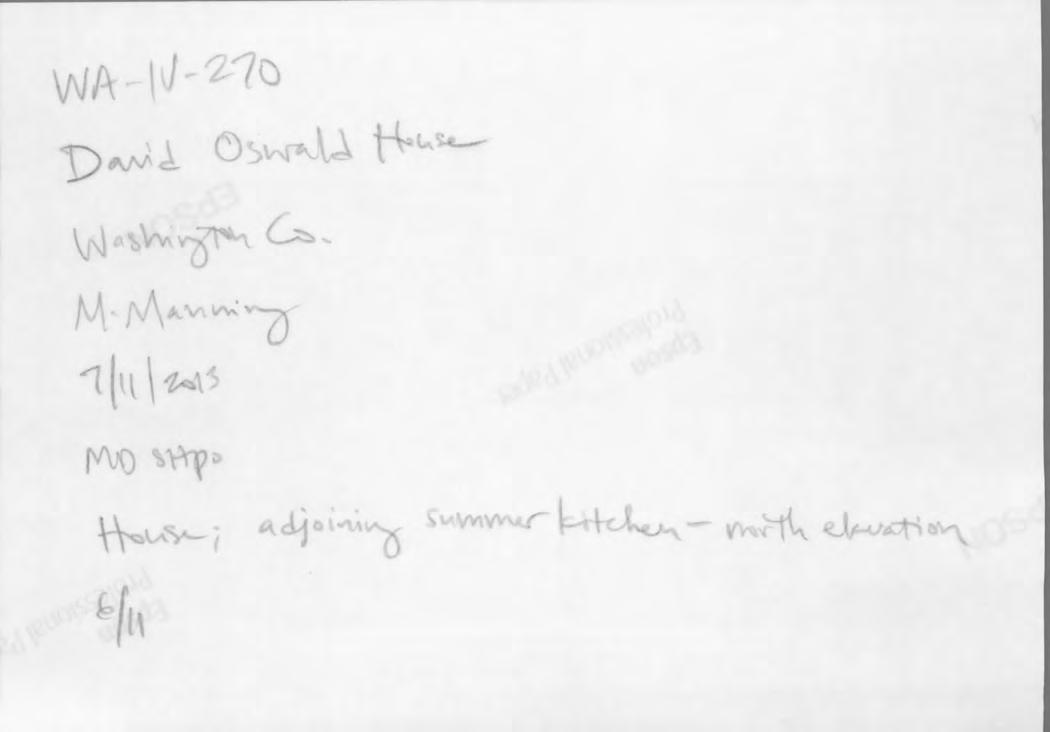 WA-IV-270
David Oswald House
Washington Co.
M. Manning
7/11/2013
MD SHPO
House; adjoining summer kitchen – north elevation
6/11
EPSON
Epson
Professional Paper
EPSON
Epson
Professional Paper